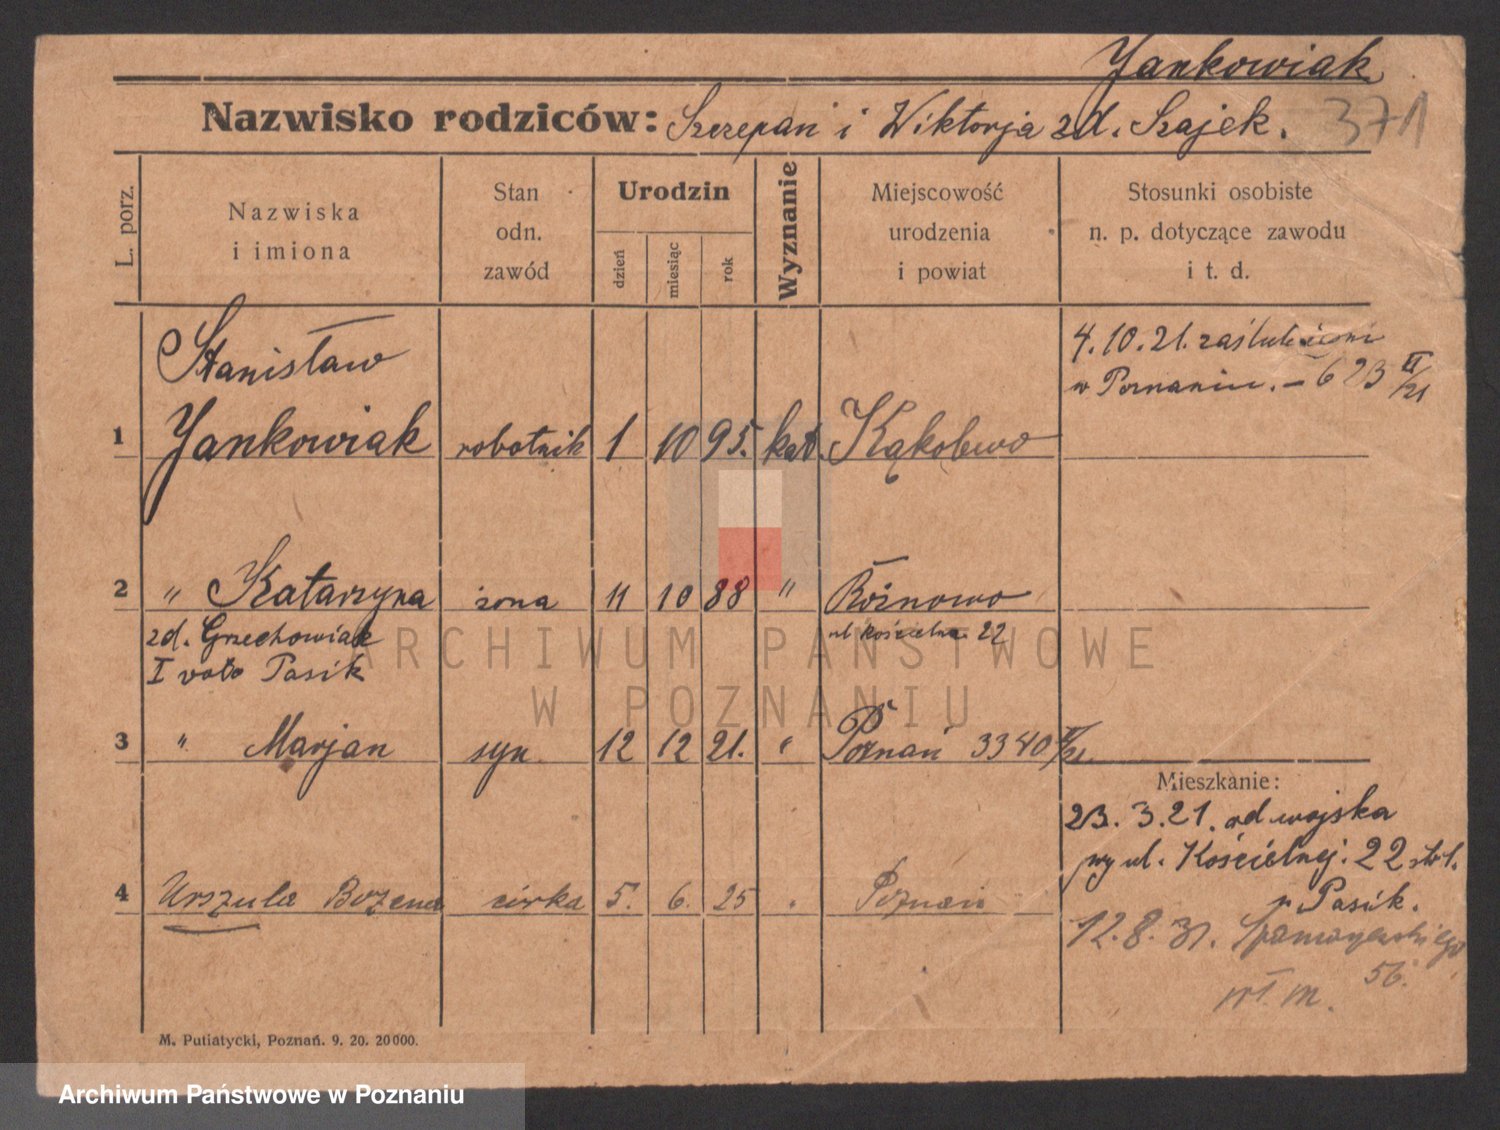 Jankowiak
Nazwisko rodziców: Szczepan i Wiktorja zd. Szajek. 371
L. porz.
Nazwiska
i imiona
Stan
odn.
zawód
Urodzin
dzień
miesiąc
rok
Wyznanie
Miejscowość
urodzenia
i powiat
Stosunki osobiste
n. p. dotyczące zawodu
i t. d.
Stanisław
1 Jankowiak robotnik 1 10 95. kat. Kąkolewo
4.10.21. zaślubieni
w Poznaniu. – 623 II/21
2 " Katarzyna żona 11 10 88 " Różnowo
zd. Grzechowiak
I voto Pasik
ul Kościelna 22
3 " Marjan syn 12 12 21. " Poznań 3340 /21
4 Urszula Bożena córka 5. 6. 25 " Poznań
Mieszkanie:
23. 3. 21. od wojska
ul. Kościelnej. 22
Pasik.
12. 8. 31.
56.
m.
M. Putiatycki, Poznań. 9. 20. 20000.
ARCHIWUM PAŃSTWOWE
W POZNANIU
Archiwum Państwowe w Poznaniu